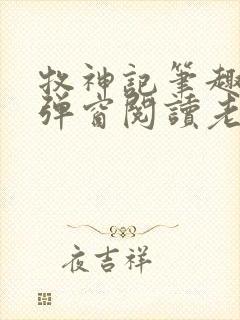 牧神記筆趣
弹窗閱讀老
夜吉祥